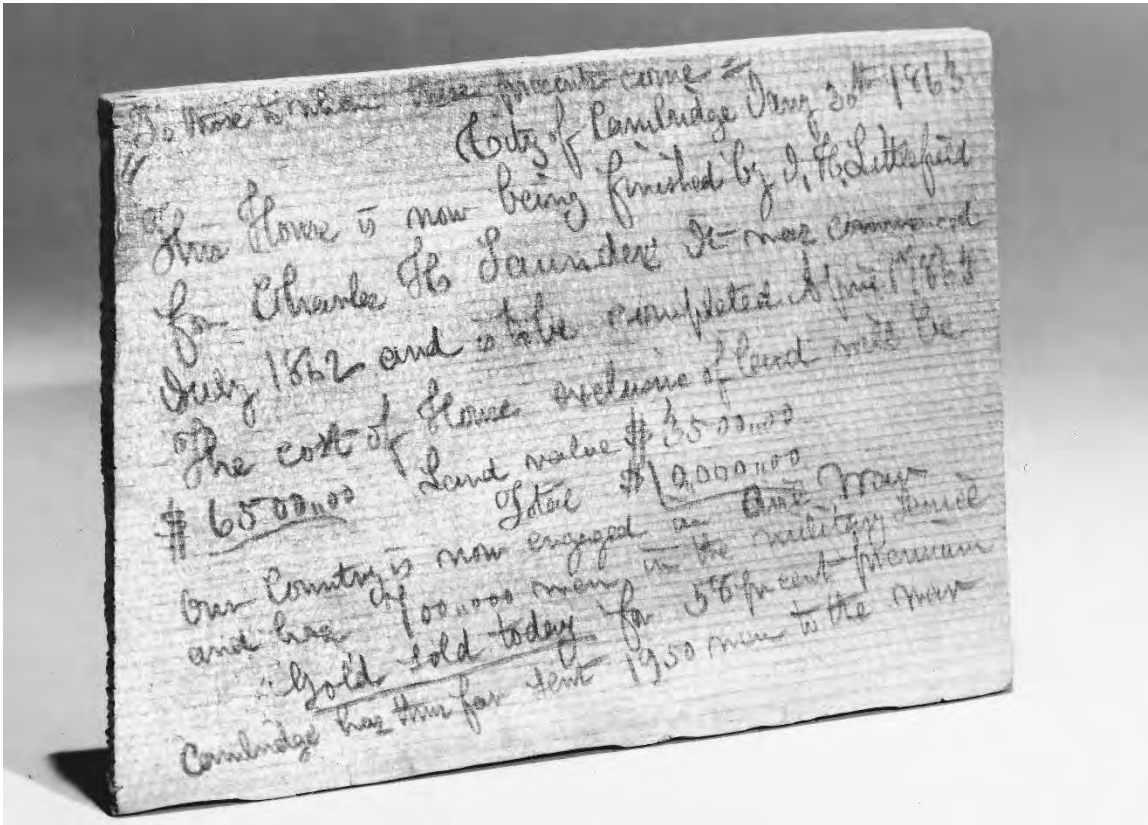 To those to whom these presents come =
City of Cambridge Jany 30th 1863
This House is now being finished by J. H. Littlefield
for Charles H Saunders It was commenced
July 1862 and is to be completed April 1st 1863
The cost of House exclusive of land will be
$ 6500,,00 Land value $ 3500,,00
Total $10,000,,00
Our Country is now engaged in War
and has 700,,000 men in the military service
Gold sold today for 58 pr cent premium
Cambridge has thus far sent 1950 men to the war